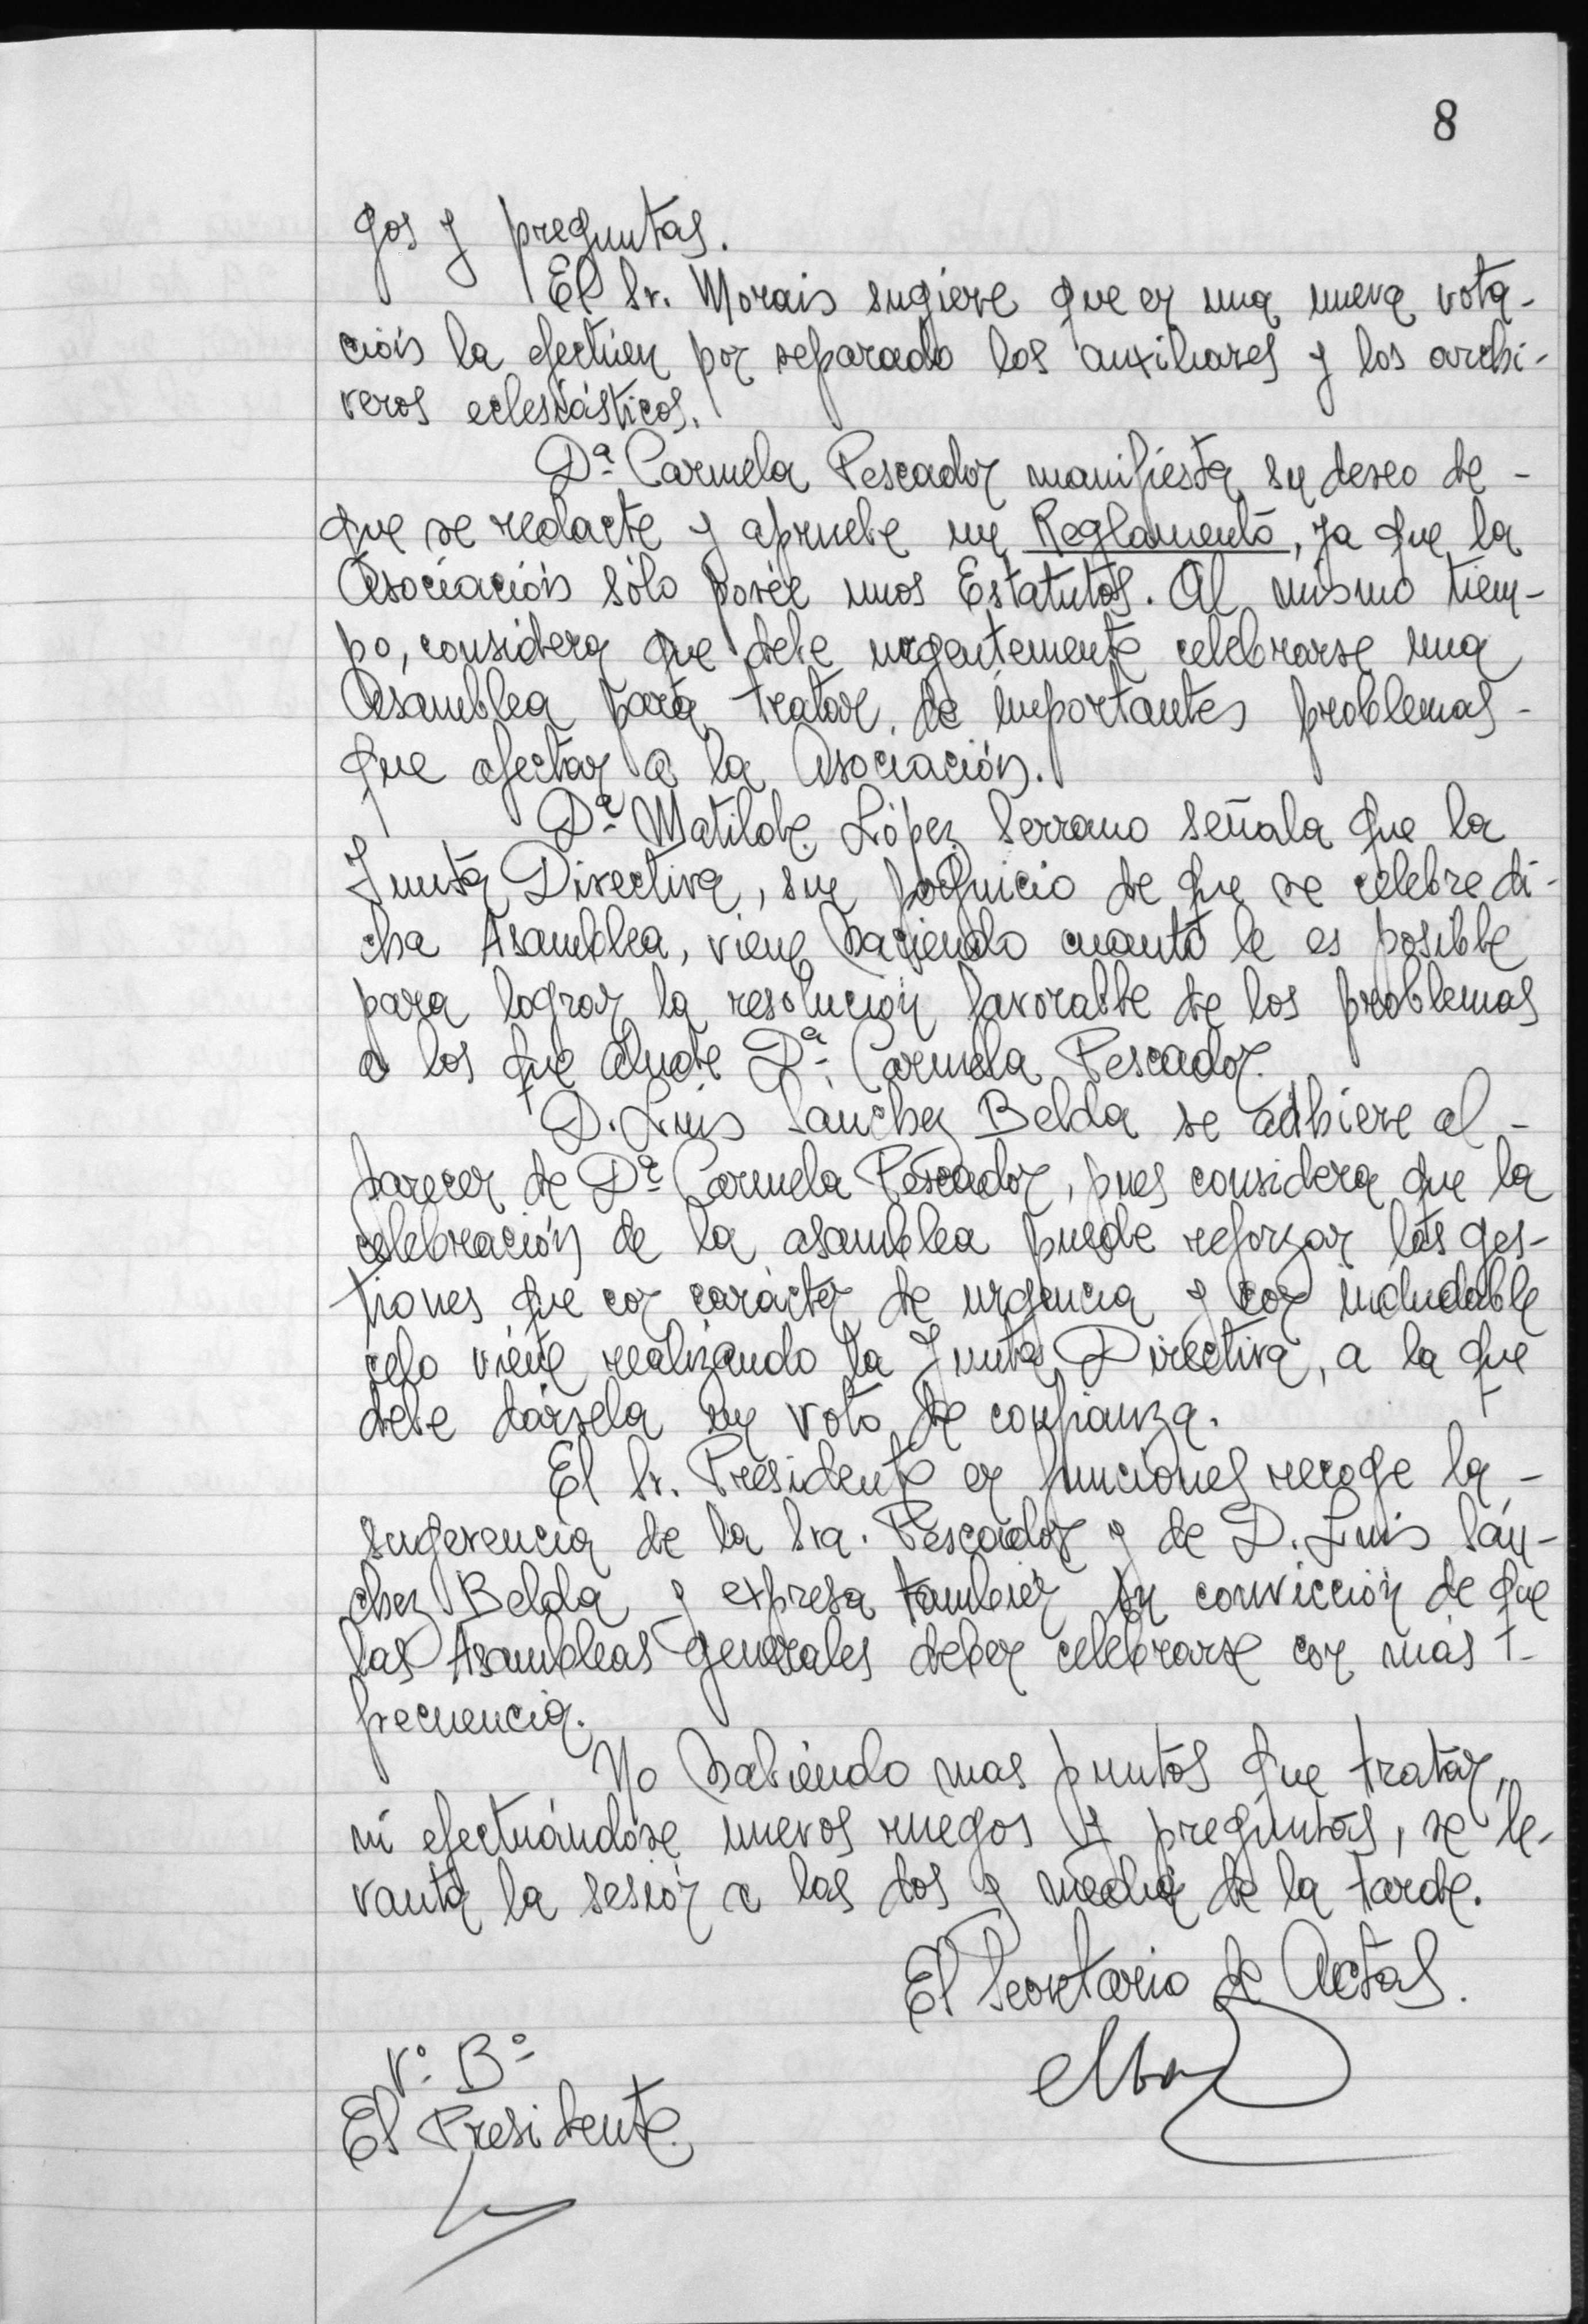 8
gos y preguntas.
El Sr. Morais sugiere que en una nueva vota-
ción la efectúen por separado los auxiliares y los archi-
veros eclesiásticos.
Dª Carmela Pescador manifiesta su deseo de -
que se redacte y apruebe un Reglamento, ya que la
Asociación sólo posée unos Estatutos. Al mismo tiem-
po, considera que debe urgentemente celebrarse una
Asamblea para tratar de importantes problemas -
que afectan a la Asociación.
Dª Matilde López Serrano señala que la
Junta Directiva, sin perjuicio de que se celebre di-
cha Asamblea, viene haciendo cuanto le es posible
para lograr la resolución favorable de los problemas
a los que alude Dª Carmela Pescador.
D. Luis Sánchez Belda se adhiere al -
parecer de Dª Carmela Pescador, pues considera que la
celebración de la asamblea puede reforzar las ges-
tiones que con carácter de urgencia y con indudable
celo viene realizando la Junta Directiva, a la que
debe dársela un voto de confianza.
El Sr. Presidente en funciones recoge la -
sugerencia de la Sra. Pescador y de D. Luis Sán-
chez Belda y expresa también su convicción de que
las Asambleas generales deben celebrarse con más -
frecuencia.
No habiendo mas puntos que tratar,
ni efectuándose nuevos ruegos y preguntas, se le-
vanta la sesión a las dos y media de la tarde.
El Secretario de Actas.
Vº Bº
El Presidente